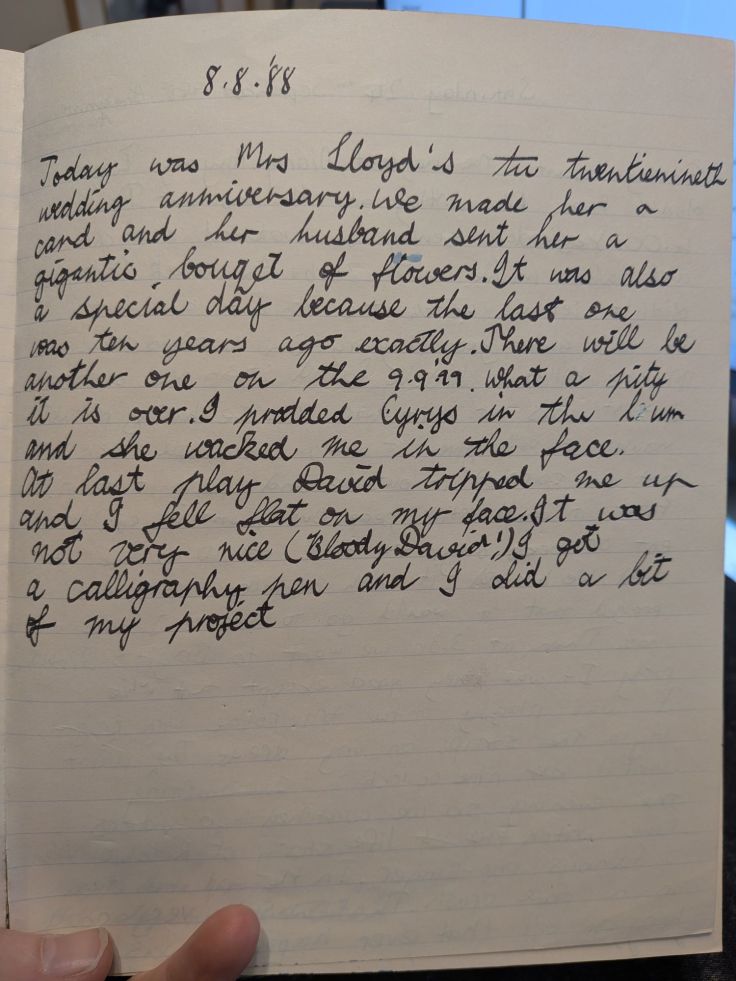 8.8.'88
Today was Mrs Lloyd's tw twentienineth
wedding anniversary. We made her a
card and her husband sent her a
gigantic bouqet of flowers. It was also
a special day because the last one
was ten years ago exactly. There will be
another one on the 9.9.'99. What a pity
it is over. I prodded Cyrys in the bum
and she wacked me in the face.
At last play David tripped me up
and I fell flat on my face. It was
not very nice ('Bloody David!') I got
a calligraphy pen and I did a bit
of my project